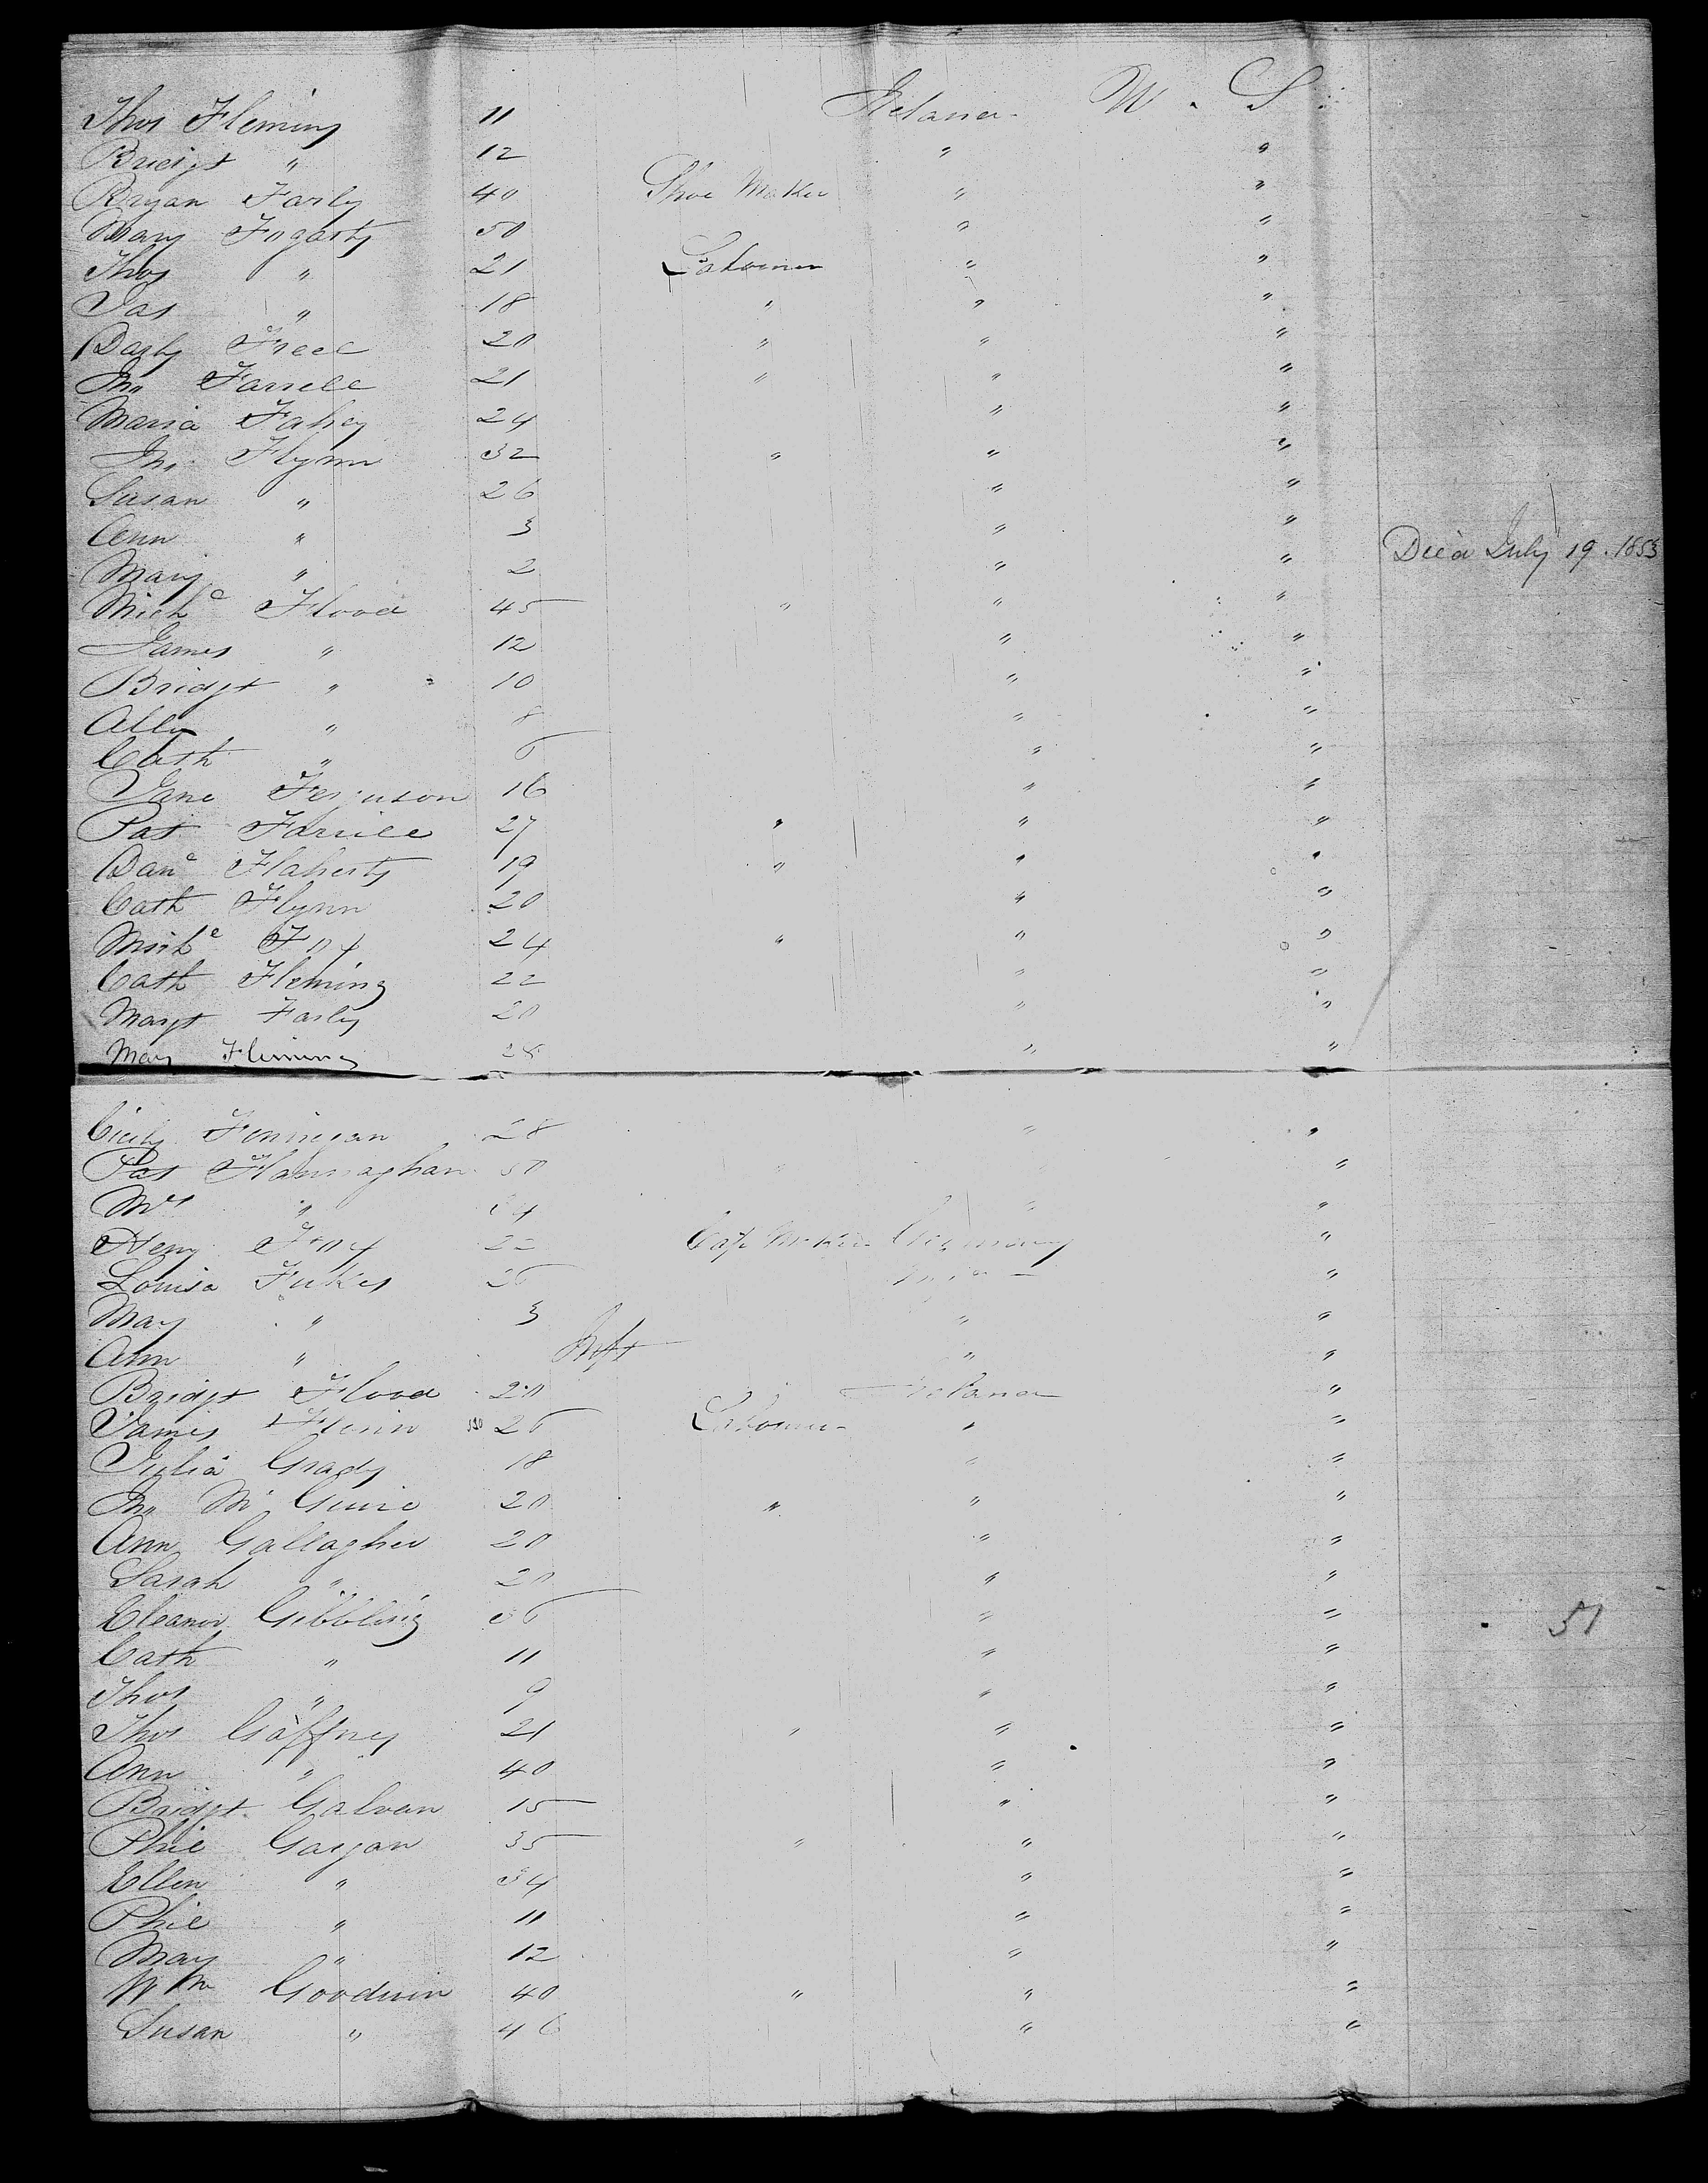 Thos Fleming 11 Ireland U. S
Bridgt " 12 " "
Bryan Farly 40 Shoe Maker " "
Mary Fogarty 50 " "
Thos " 21 Labourer " "
Jas " 18 " " "
Darby Free 20 " " "
Jno Farrell 21 " " "
Maria Fahey 24 " "
Jno Flynn 32 " " "
Susan " 26 " "
Ann " 3 " "
Mary " 2 " " Died July 19. 1853
Michl Flood 45 " " "
James " 12 " "
Bridgt " 10 " "
" 8 " "
Cath " 6 " "
Jane Ferguson 16 " "
Pat Farrell 27 " " "
Danl Flaherty 19 " " "
Cath Flynn 20 " "
Michl Fox 24 " " "
Cath Fleming 22 " "
Margt Farly 20 " "
Mary Fleming 28 " "
Cicily Finnigan 28 " "
Pat Flannaghan 50 " "
Mrs " " "
Heny Fox 22 Cap Maker Germany "
Louisa Fukes 26 "
Mary " 3 " "
Ann " Inft " "
Bridgt Flood 20 Ireland "
James 26 Labourer " "
Julia Grady 18 " "
Jno Mc Guire 20 " " "
Ann Gallagher 20 " "
Sarah " 20 " "
Eleanor Gibbling 36 " " 51
Cath " 11 " "
Thos " 9 " "
Thos Gaffney 21 " " "
Ann " 40 " "
Bridgt Galvan 15 " "
Phil Gargan 35 " " "
Ellen " 34 " "
Phil " 11 " "
Mary " 12 " "
Wm Goodwin 40 " " "
Susan " 46 " "